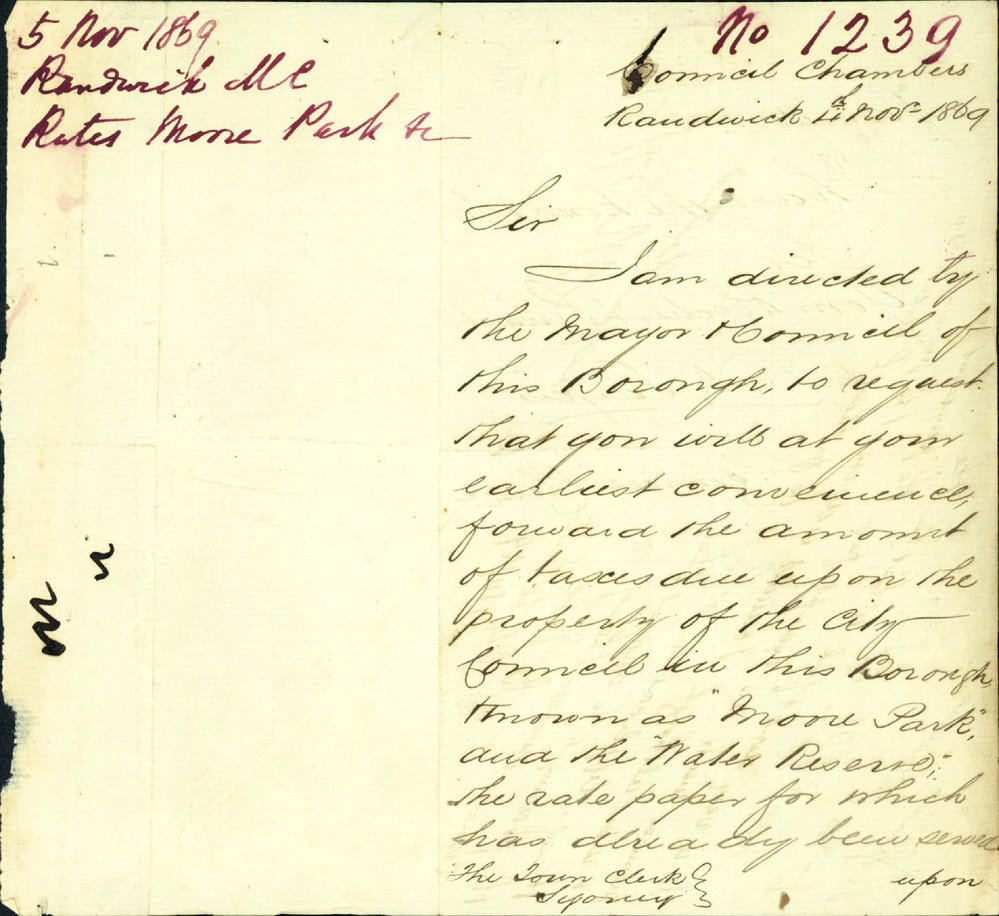 5 Nov 1869
Randwick MC
Rates Moore Park &c
No 1239
Council Chambers
Randwick 4th Novr 1869
Sir
I am directed by
the Mayor & Council of
this Borough, to request
that you will at your
earliest convenience,
forward the amount
of taxes due upon the
property of the City
Council in this Borough,
known as "Moore Park",
and the "Water Reserve";
the rate paper for which
has already been served
The Town Clerk
Sydney
upon